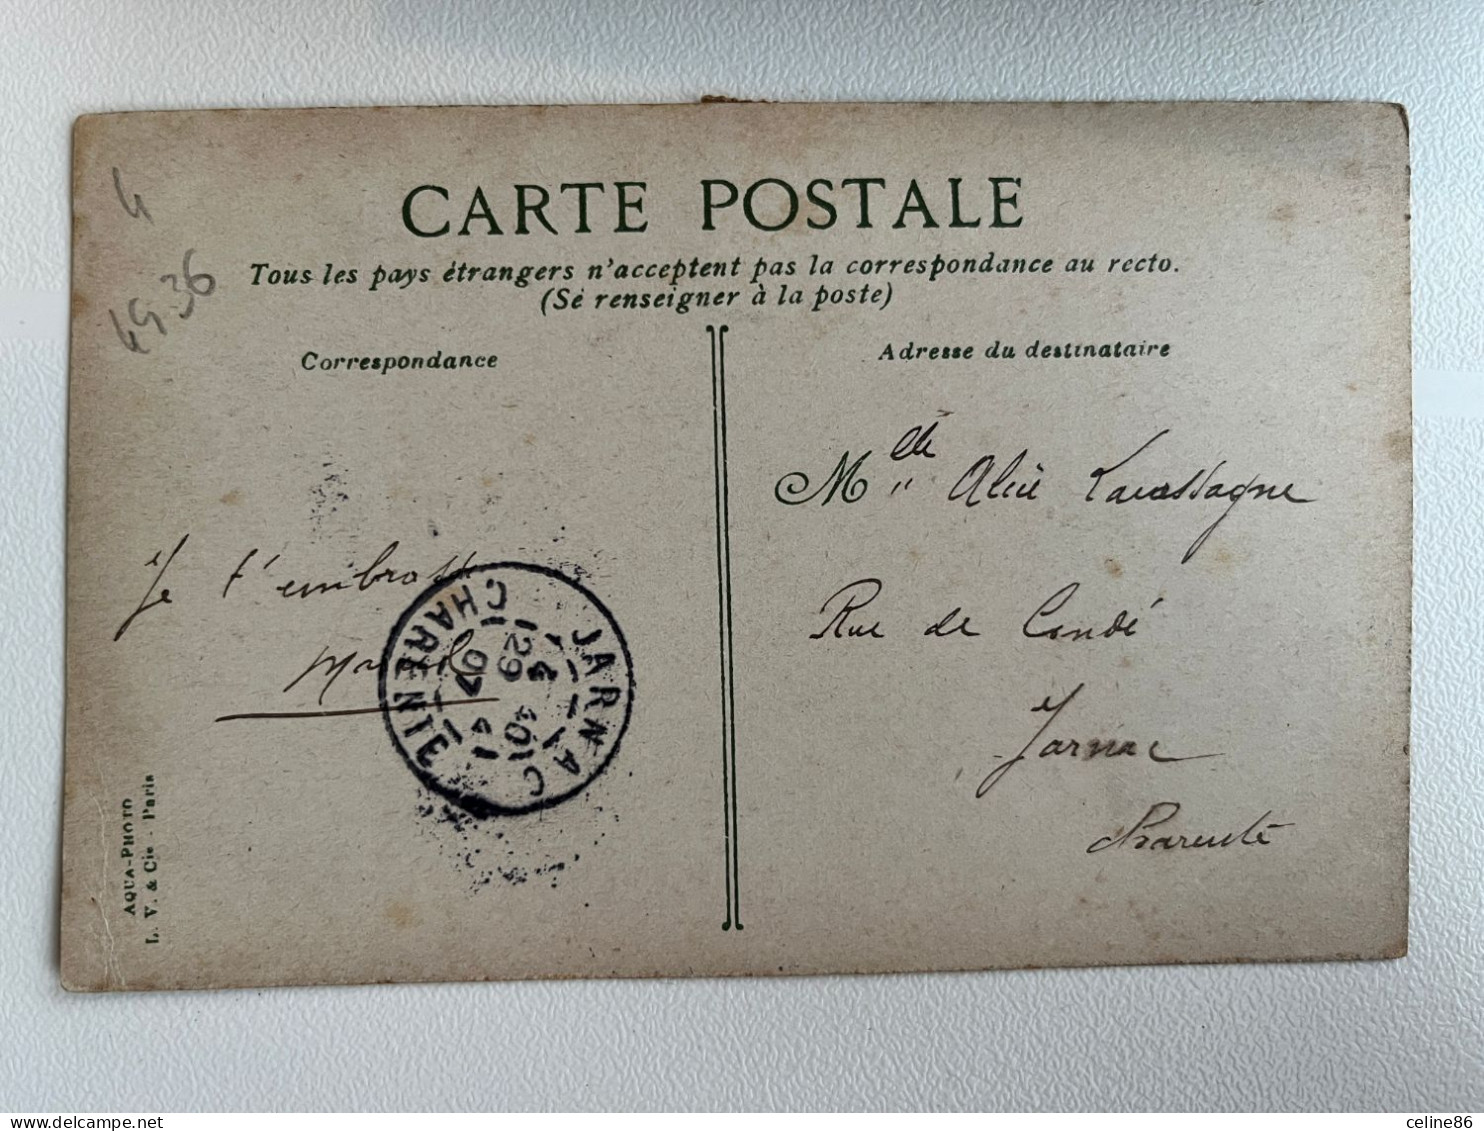 4
4936
CARTE POSTALE
Tous les pays étrangers n'acceptent pas la correspondance au recto.
(Se renseigner à la poste)
Correspondance
Adresse du destinataire
Je t'embrasse
M
elle Alice
Rue de Condé
Jarnac
Charente
JARNAC
CHARENTE
29
4
07
AQUA-PHOTO
L. V. & Cie - Paris
delcampe.net
celine86